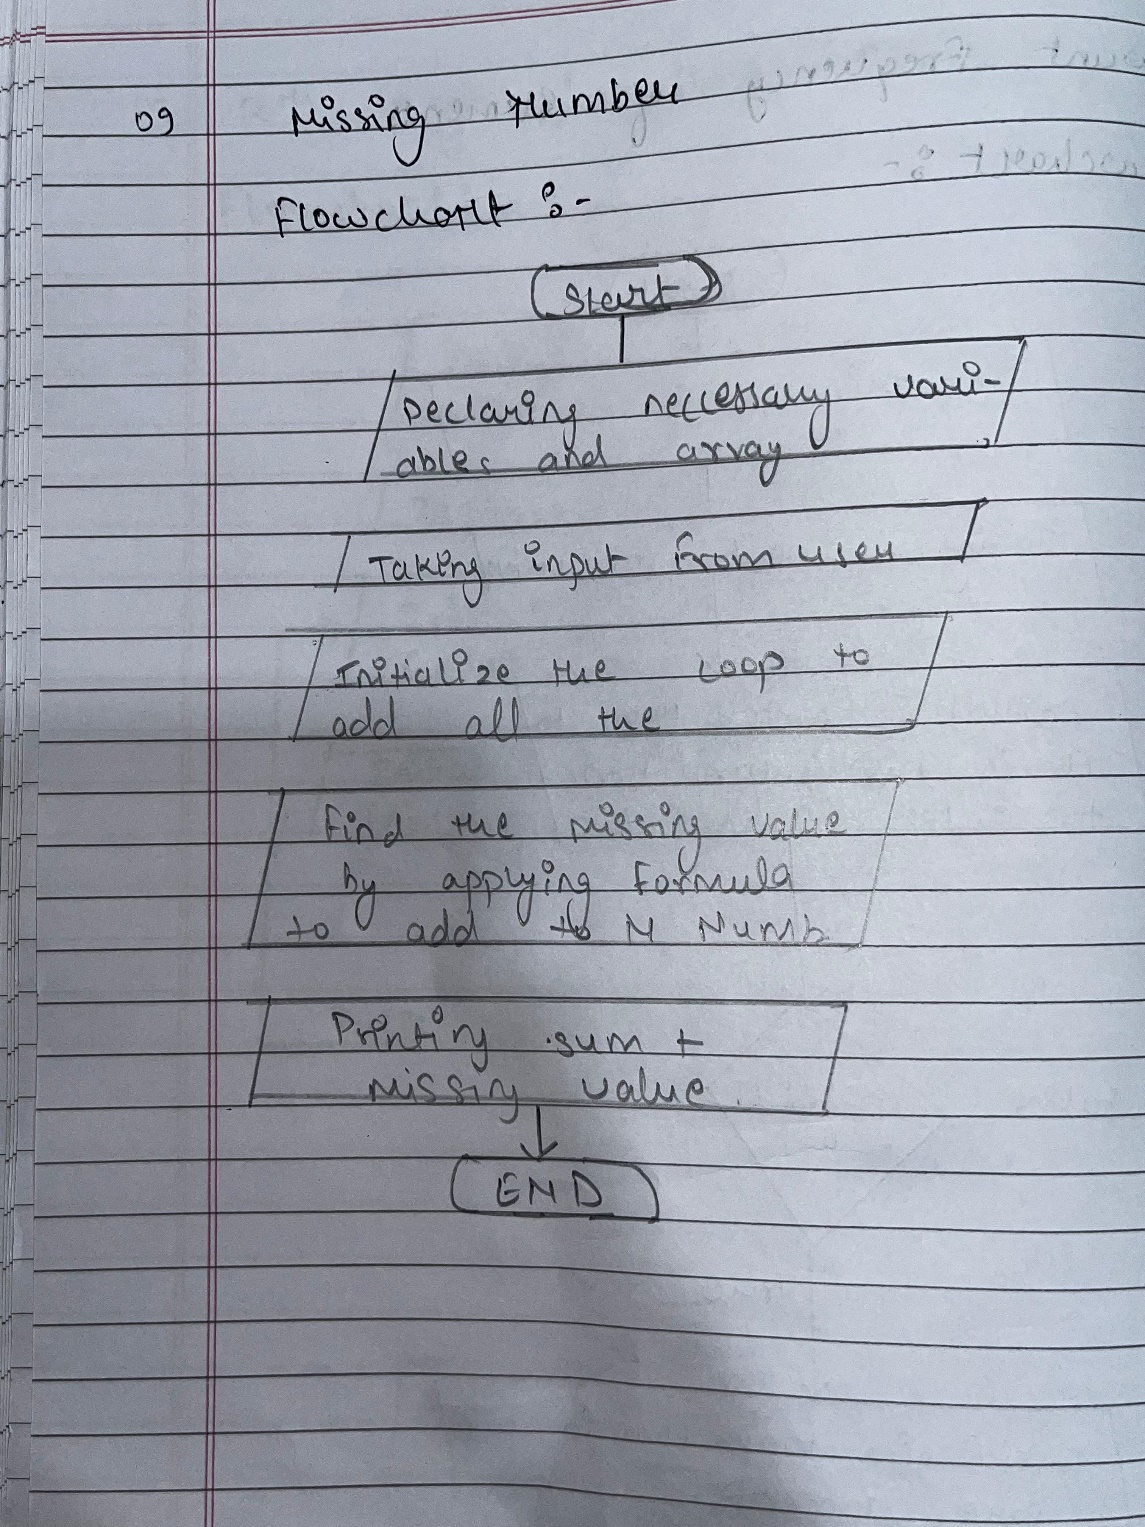 09 Missing Number
Flowchart :-
Start
Declaring neccessary vari-
ables and array
Taking input from user
Initialize the Loop to
add all the
Find the Missing Value
by applying Formula
to add to N Numb
Printing sum +
Missing value.
END